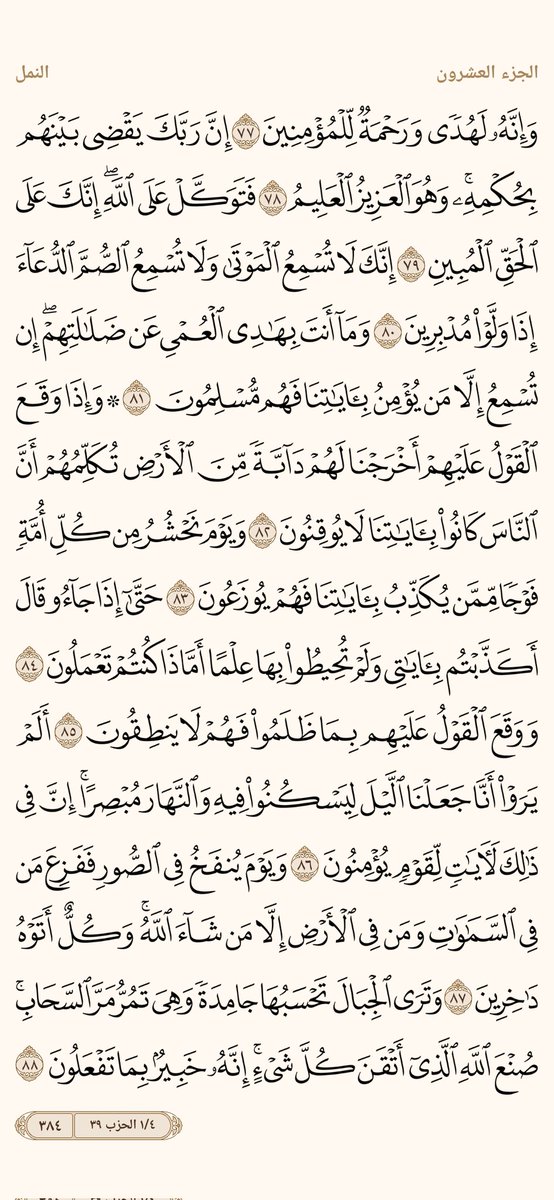 الجزء العشرون
النمل
وَإِنَّهُۥ لَهُدٗى وَرَحۡمَةٞ لِّلۡمُؤۡمِنِينَ ٧٧ إِنَّ رَبَّكَ يَقۡضِي بَيۡنَهُم
بِحُكۡمِهِۦۚ وَهُوَ ٱلۡعَزِيزُ ٱلۡعَلِيمُ ٧٨ فَتَوَكَّلۡ عَلَى ٱللَّهِۖ إِنَّكَ عَلَى
ٱلۡحَقِّ ٱلۡمُبِينِ ٧٩ إِنَّكَ لَا تُسۡمِعُ ٱلۡمَوۡتَىٰ وَلَا تُسۡمِعُ ٱلصُّمَّ ٱلدُّعَآءَ
إِذَا وَلَّوۡاْ مُدۡبِرِينَ ٨٠ وَمَآ أَنتَ بِهَٰدِي ٱلۡعُمۡيِ عَن ضَلَٰلَتِهِمۡۖ إِن
تُسۡمِعُ إِلَّا مَن يُؤۡمِنُ بِـَٔايَٰتِنَا فَهُم مُّسۡلِمُونَ ٨١ ۞ وَإِذَا وَقَعَ
ٱلۡقَوۡلُ عَلَيۡهِمۡ أَخۡرَجۡنَا لَهُمۡ دَآبَّةٗ مِّنَ ٱلۡأَرۡضِ تُكَلِّمُهُمۡ أَنَّ
ٱلنَّاسَ كَانُواْ بِـَٔايَٰتِنَا لَا يُوقِنُونَ ٨٢ وَيَوۡمَ نَحۡشُرُ مِن كُلِّ أُمَّةٖ
فَوۡجٗا مِّمَّن يُكَذِّبُ بِـَٔايَٰتِنَا فَهُمۡ يُوزَعُونَ ٨٣ حَتَّىٰٓ إِذَا جَآءُو قَالَ
أَكَذَّبۡتُم بِـَٔايَٰتِي وَلَمۡ تُحِيطُواْ بِهَا عِلۡمًا أَمَّاذَا كُنتُمۡ تَعۡمَلُونَ ٨٤
وَوَقَعَ ٱلۡقَوۡلُ عَلَيۡهِم بِمَا ظَلَمُواْ فَهُمۡ لَا يَنطِقُونَ ٨٥ أَلَمۡ
يَرَوۡاْ أَنَّا جَعَلۡنَا ٱلَّيۡلَ لِيَسۡكُنُواْ فِيهِ وَٱلنَّهَارَ مُبۡصِرًاۚ إِنَّ فِي
ذَٰلِكَ لَأٓيَٰتٖ لِّقَوۡمٖ يُؤۡمِنُونَ ٨٦ وَيَوۡمَ يُنفَخُ فِي ٱلصُّورِ فَفَزِعَ مَن
فِي ٱلسَّمَٰوَٰتِ وَمَن فِي ٱلۡأَرۡضِ إِلَّا مَن شَآءَ ٱللَّهُۚ وَكُلٌّ أَتَوۡهُ
دَٰخِرِينَ ٨٧ وَتَرَى ٱلۡجِبَالَ تَحۡسَبُهَا جَامِدَةٗ وَهِيَ تَمُرُّ مَرَّ ٱلسَّحَابِۚ
صُنۡعَ ٱللَّهِ ٱلَّذِيٓ أَتۡقَنَ كُلَّ شَيۡءٍۚ إِنَّهُۥ خَبِيرُۢ بِمَا تَفۡعَلُونَ ٨٨
١/٤ الحزب ٣٩ ٣٨٤